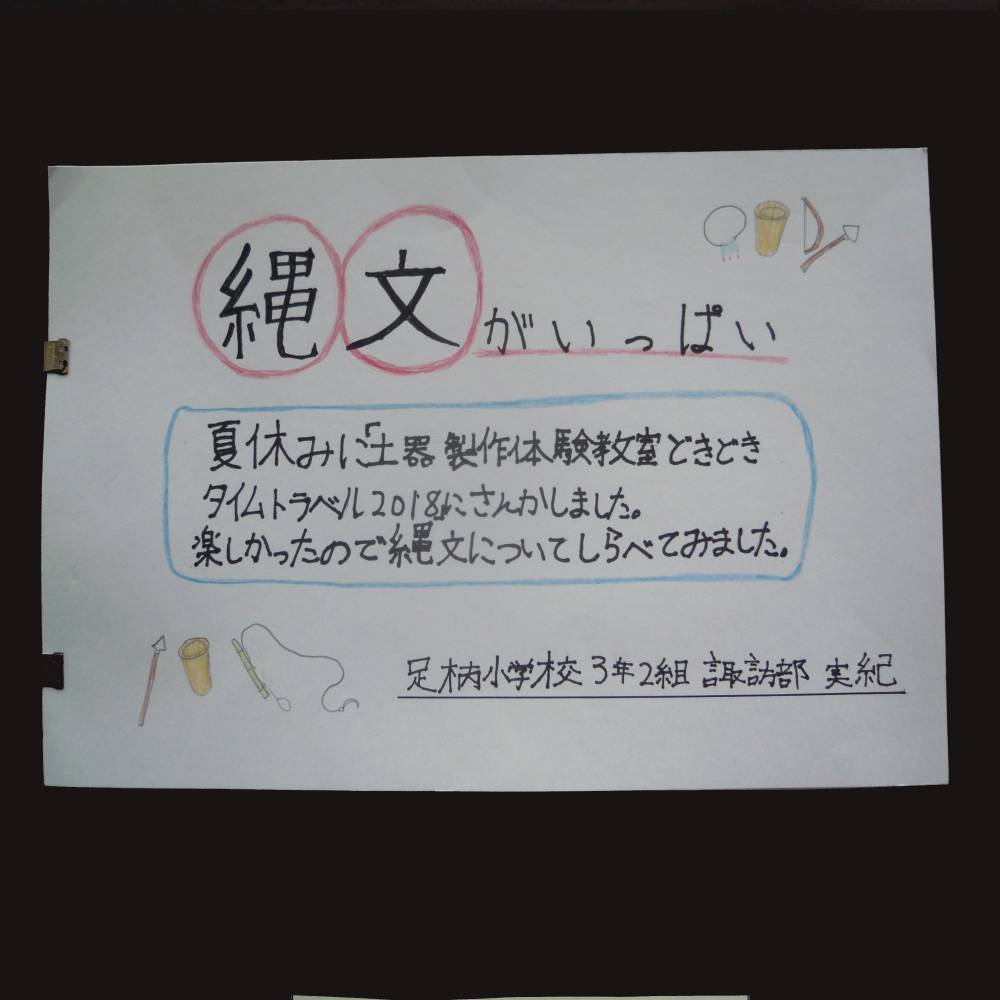 縄文がいっぱい
夏休みに「土器製作体験教室どきどき
タイムトラベル2018」にさんかしました。
楽しかったので縄文についてしらべてみました。
足柄小学校3年2組 諏訪部 実紀